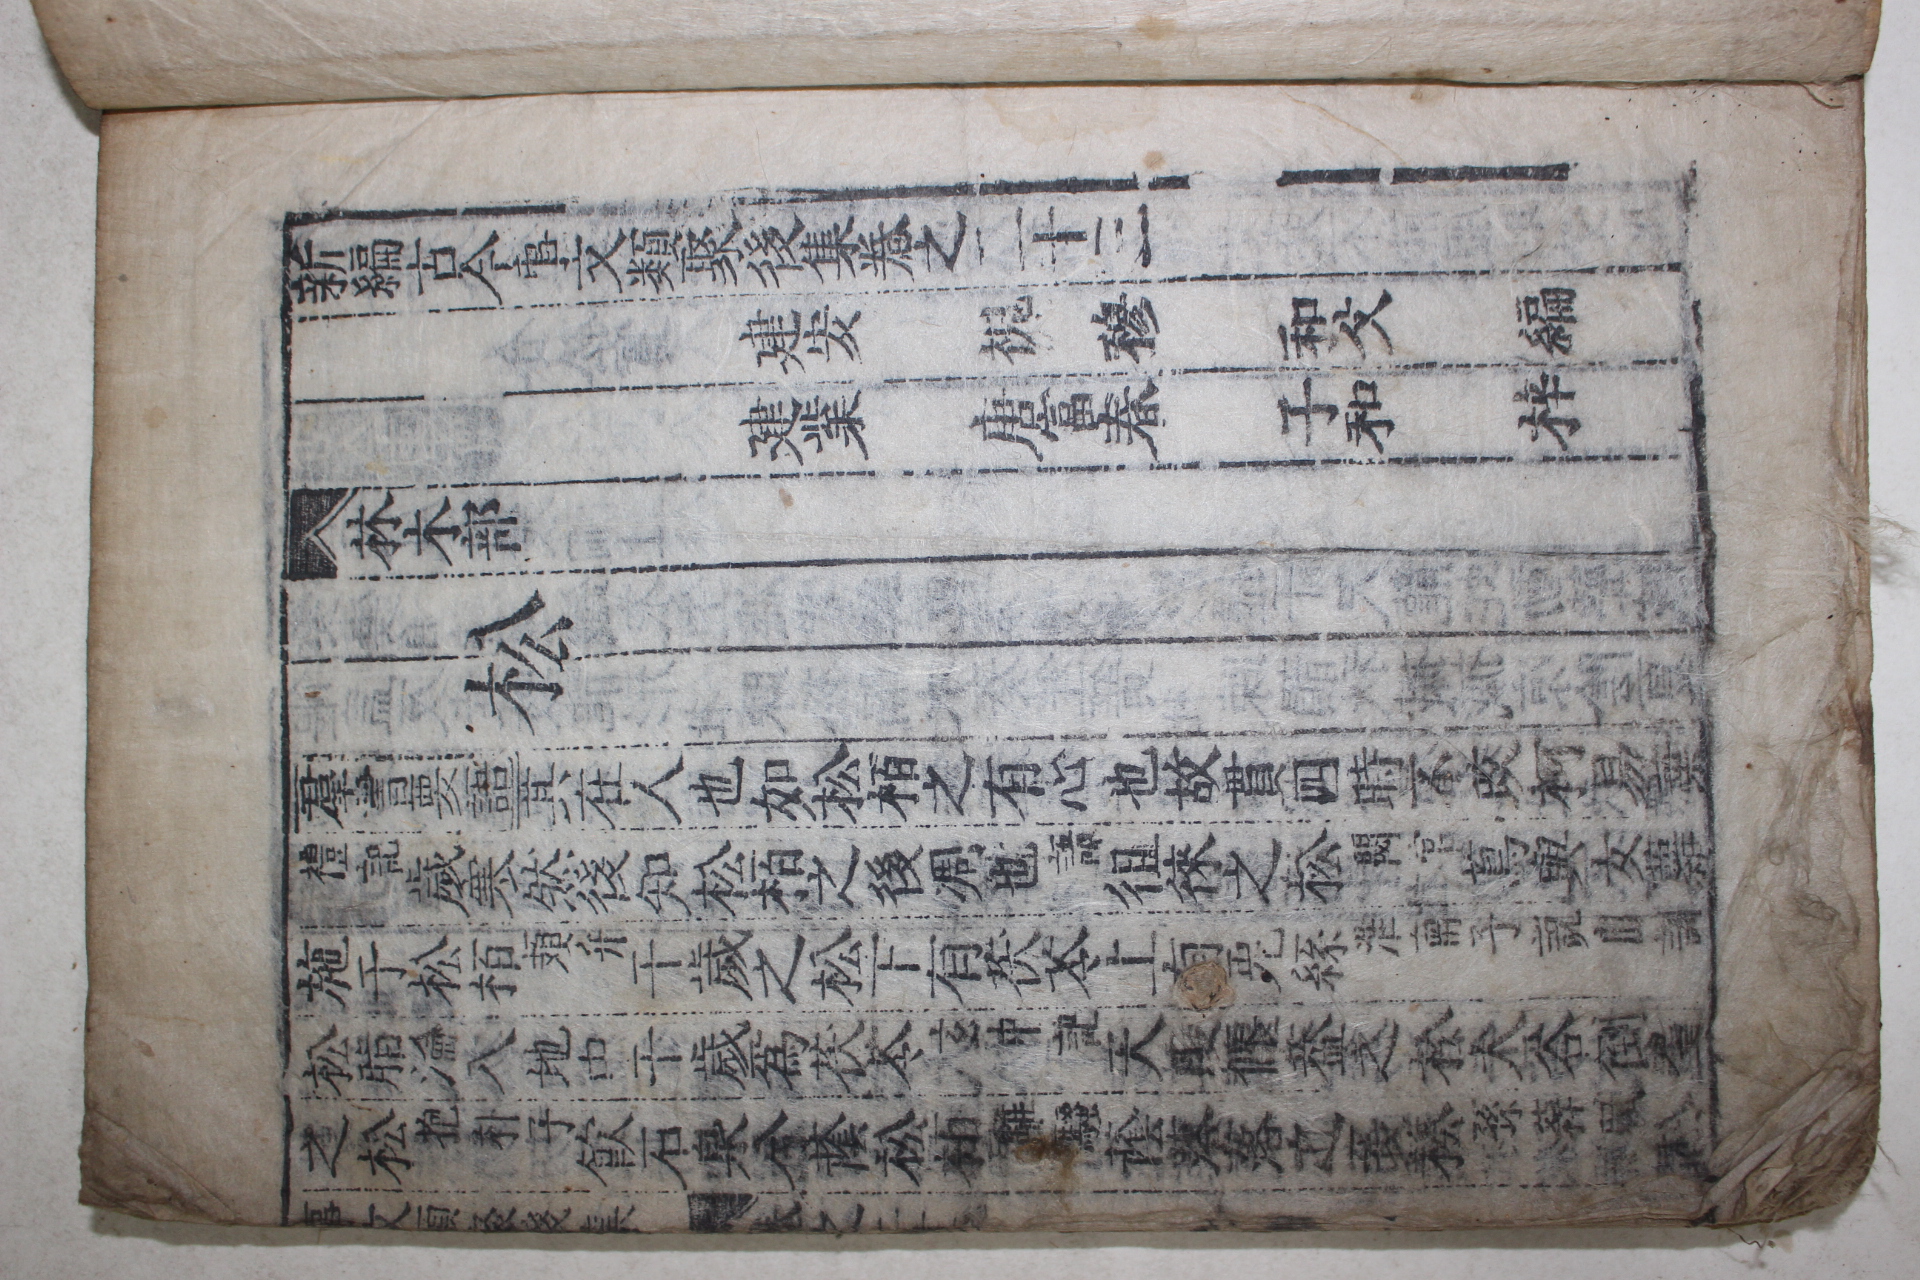 新編古今事文類聚後集卷之二十三
建安 祝穆 和父 編
建業 唐富春 子和 梓
林木部
松
羣書要語其在人也如松栢之有心也故貫四時不改柯易葉
禮記歲寒然後知松栢之後凋也語徂徠之松閟宮蔦與女蘿
施于松栢頍弁千歲之松下有茯苓上有兎絲淮南子說山訓
松脂淪入地中千歲爲茯苓玄中記天陵偃蓋之松大谷倒生
之松抱朴子飮石泉兮蔭松栢離騷蔭落落之長松孫綽
事文類聚後集 卷之二十三